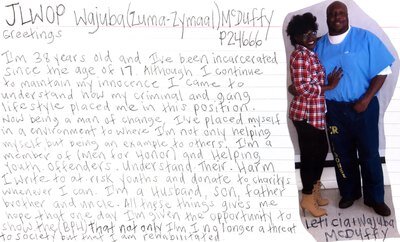 JLWOP Wajuba (Zuma-Zymaal) McDuffy
Greetings
P24666
I'm 38 years old and I've been incarcerated
since the age of 17. Although I continue
to maintain my innocence I came to
understand how my criminal and gang
lifestyle placed me in this position.
Now being a man of change, I've placed myself
in a environment to where I'm not only helping
myself but being an example to others. I'm a
member of (men for Honor) and Helping
Youth Offenders. Understand Their. Harm
I write to at risk youtes and donate to charitys
whenever I can. I'm a Husband, son, father
brother and uncle. All these things gives me
hope that one day I'm given the opportunity to
show the (BPH) that not only I'm I no longer a threat
to society but that I am rehabilitated
Leticia+Wajuba
McDuffy